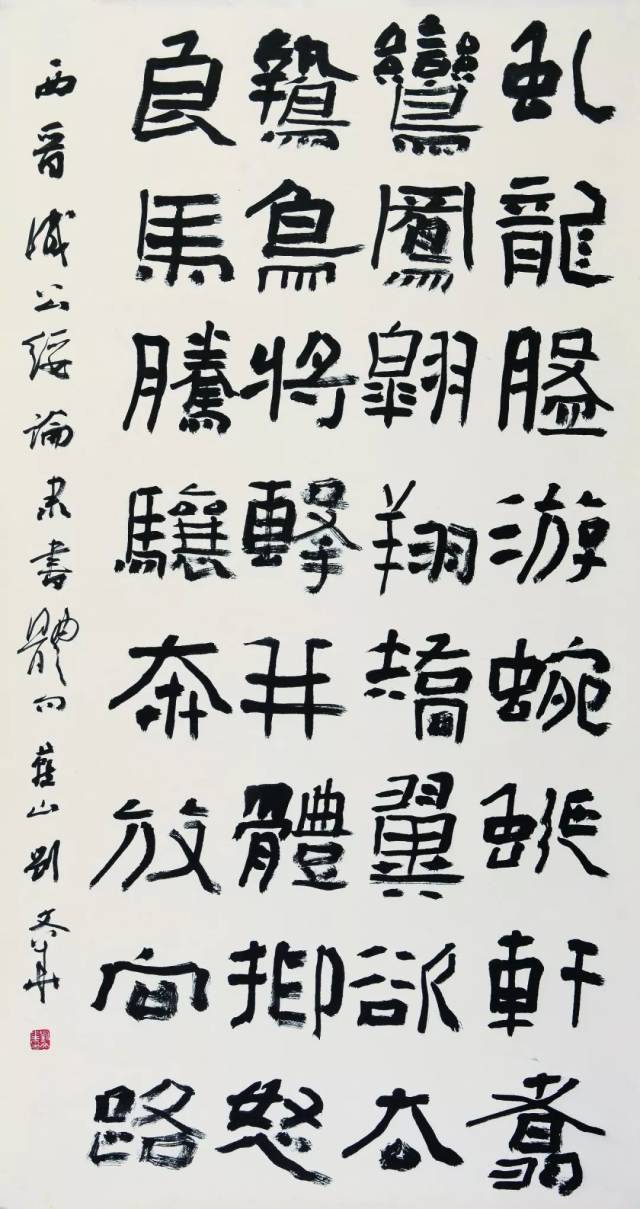 虬龍盤游蜿蜒軒翥
鸞鳳翱翔矯翼欲去
鷙鳥將擊并體抑怒
良馬騰驤奔放向路
西晉成公綏論隶書體句 舊山劉文華